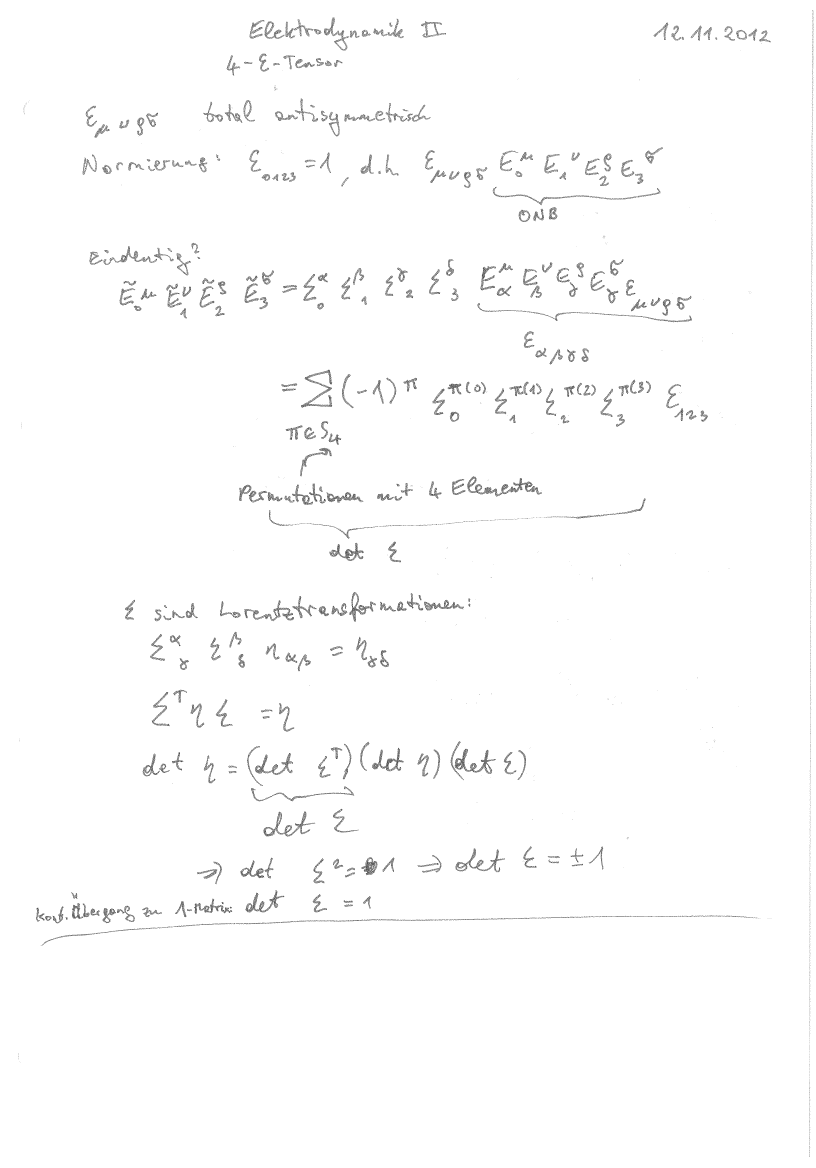 Elektrodynamik II 12.11.2012
4-ε-Tensor
ε_{μνρσ} total antisymmetrisch
Normierung: ε_{0123} = 1, d.h. ε_{μνρσ} E_0^μ E_1^ν E_2^ρ E_3^σ
ONB
Eindeutig?
Ẽ_0^μ Ẽ_1^ν Ẽ_2^ρ Ẽ_3^σ = Σ_0^α Σ_1^β Σ_2^γ Σ_3^δ E_α^μ E_β^ν E_γ^ρ E_γ^σ ε_{μνρσ}
ε_{αβγδ}
= Σ_{π∈S_4} (-1)^π Σ_0^{π(0)} Σ_1^{π(1)} Σ_2^{π(2)} Σ_3^{π(3)} ε_{123}
Permutationen mit 4 Elementen
det Σ
Σ sind Lorentztransformationen:
Σ^α_γ Σ^β_δ η_{αβ} = η_{γδ}
Σ^T η Σ = η
det η = (det Σ^T) (det η) (det Σ)
det Σ
⇒ det Σ² = 1 ⇒ det Σ = ±1
Kont. Übergang zu 1-Matrix: det Σ = 1